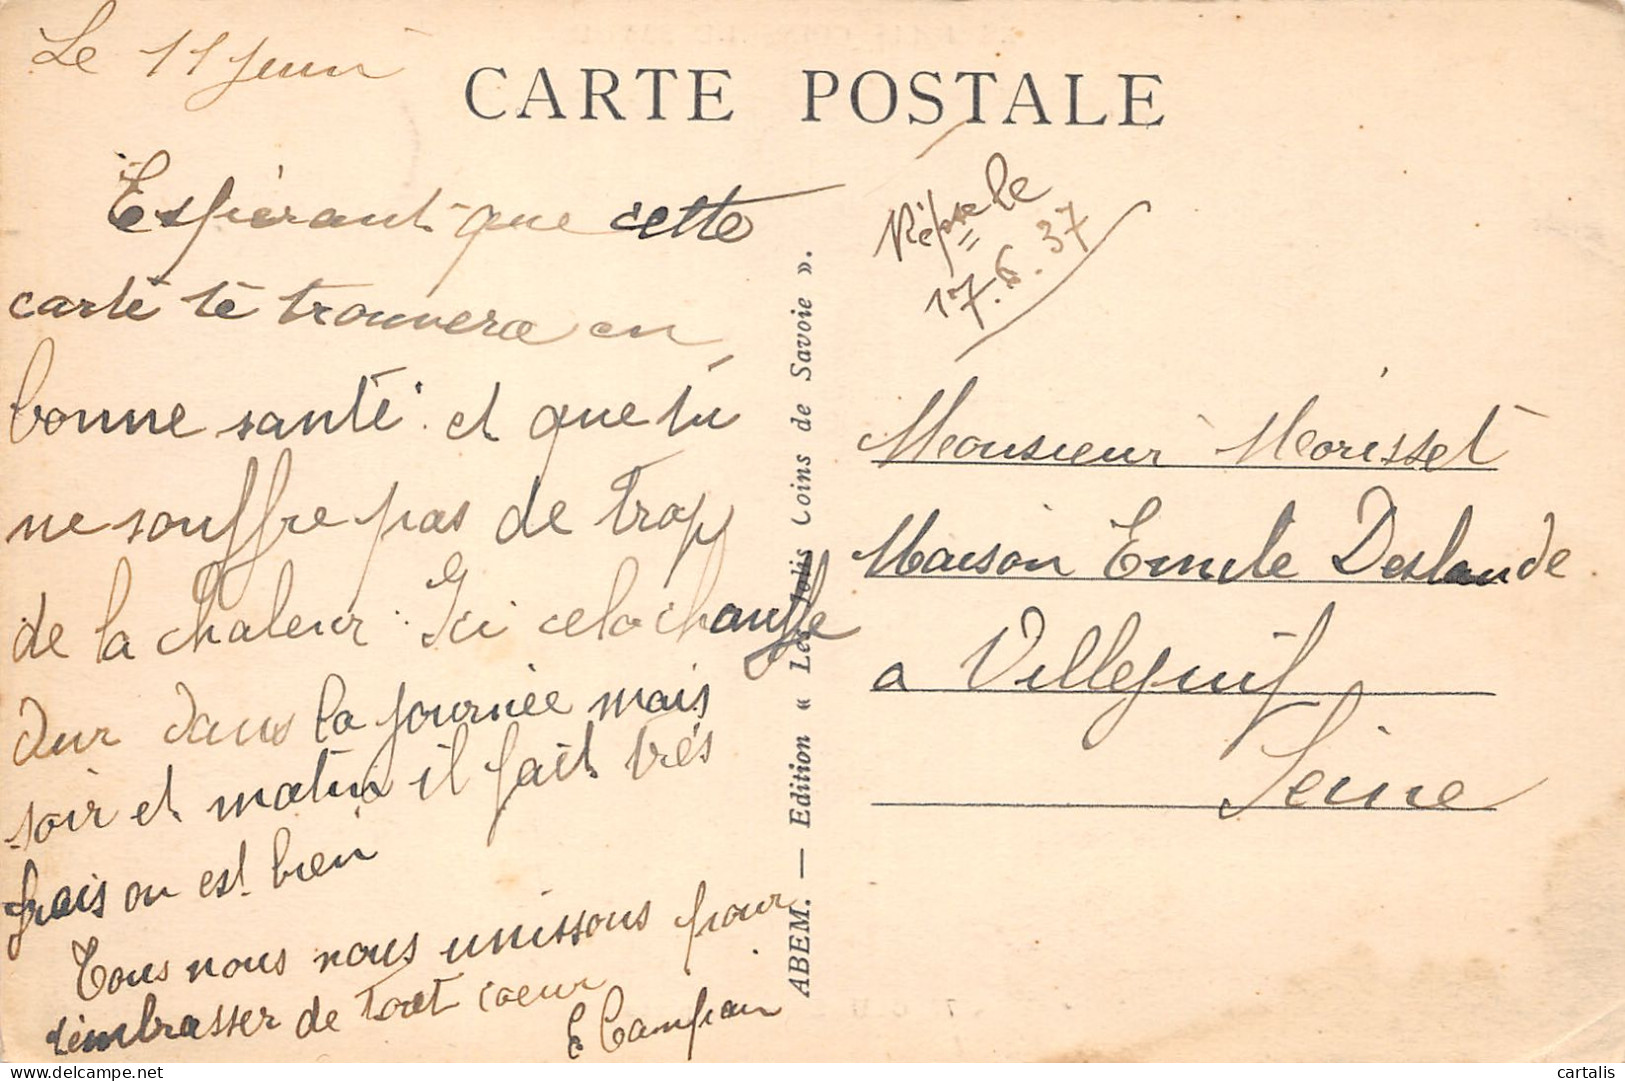 Le 11 juin
CARTE POSTALE
Espérant que cette
carte te trouvera en
bonne santé et que tu
ne souffre pas de trop
de la chaleur. Ici cela chauffe
dur dans la journée mais
soir et matin il fait très
frais on est bien
Tous nous nous unissons pour
t'embrasser de tout coeur
E
ABEM. — Edition « Les Jolis Coins de Savoie ».
Répse le
17.6.37
Monsieur Morisset
Maison Emile Deslande
a Villejuif
Seine
delcampe.net
cartalis